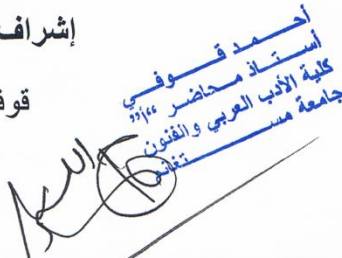 إشراف
قوف
أحمد قوفي
أستاذ محاضر "أ"
كلية الأدب العربي والفنون
جامعة مستغانم